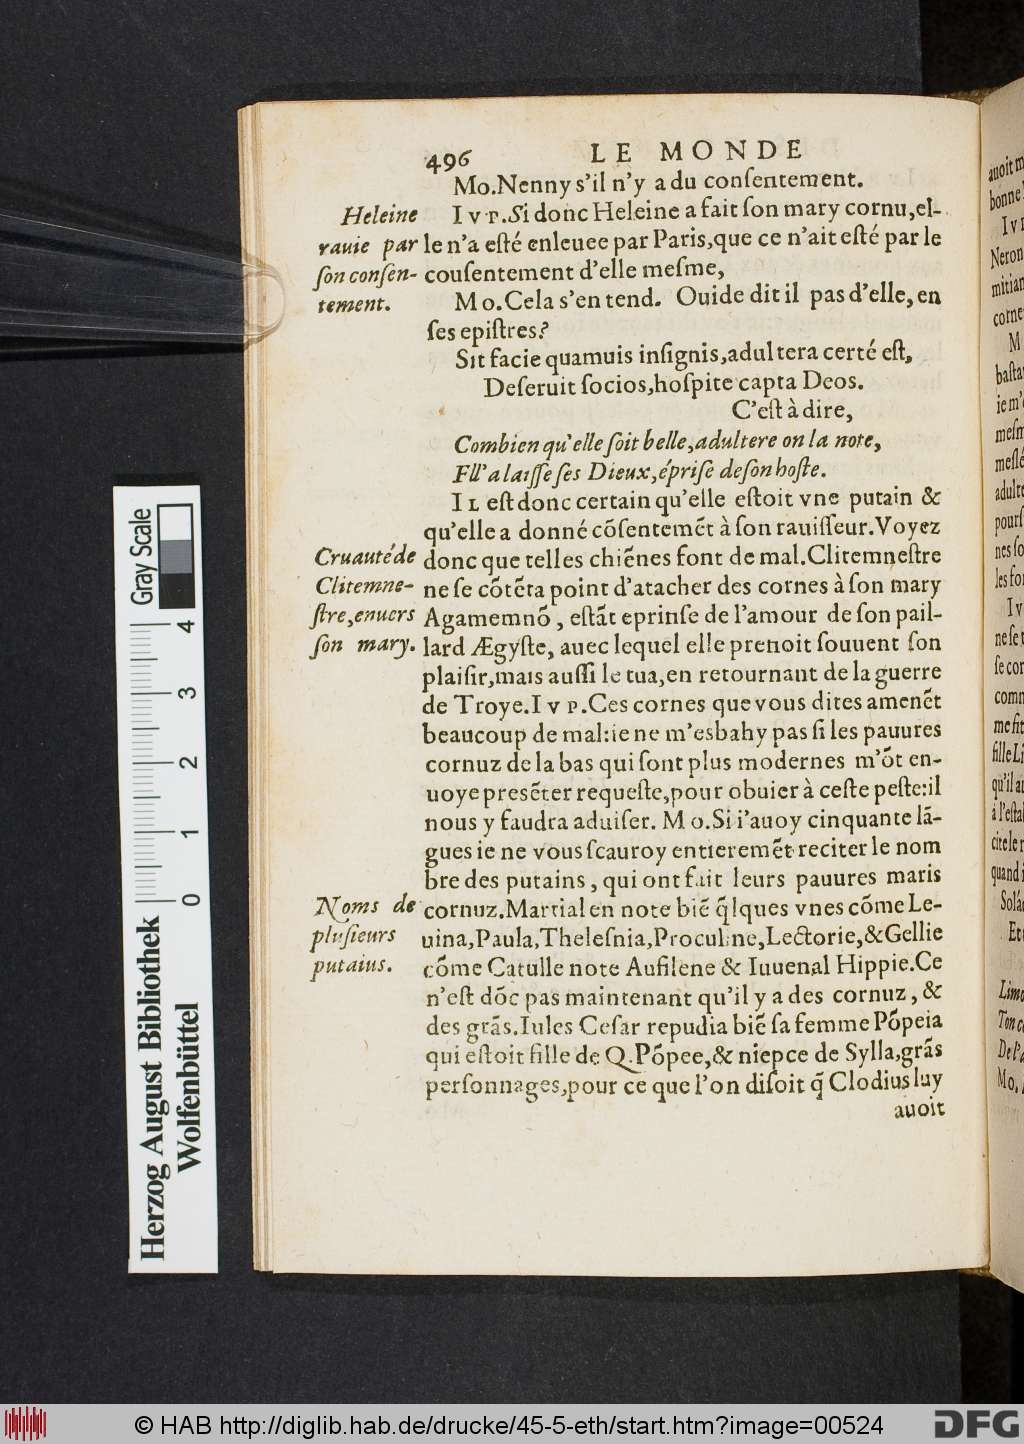 496 LE MONDE
Mo.Nenny s'il n'y a du conſentement.
Heleine
rauie par
ſon conſen-
tement.
I v P.Si donc Heleine a fait ſon mary cornu,el-
le n'a eſté enleuee par Paris,que ce n'ait eſté par le
couſentement d'elle meſme,
Mo.Cela s'en tend. Ouide dit il pas d'elle,en
ſes epiſtres?
Sit facie quamuis inſignis,adultera certé eſt,
Deſeruit ſocios,hoſpite capta Deos.
C'eſt à dire,
Combien qu'elle ſoit belle,adultere on la note,
Fll'a laiſſe ſes Dieux,épriſe de ſon hoſte.
IL eſt donc certain qu'elle eſtoit vne putain &
qu'elle a donné cõſentemẽt à ſon rauiſſeur.Voyez
Cruauté de
Clitemne-
ſtre,enuers
ſon mary.
donc que telles chiẽnes font de mal.Clitemneſtre
ne ſe cõtẽta point d'atacher des cornes à ſon mary
Agamemnõ, eſtãt eprinſe de l'amour de ſon pail-
lard Ægyſte, auec lequel elle prenoit ſouuent ſon
plaiſir,mais auſſi le tua,en retournant de la guerre
de Troye.I v P.Ces cornes que vous dites amenẽt
beaucoup de mal:ie ne m'esbahy pas ſi les pauures
cornuz de la bas qui ſont plus modernes m'õt en-
uoye preſẽter requeſte,pour obuier à ceſte peſte:il
nous y faudra aduiſer. Mo.Si i'auoy cinquante lã-
gues ie ne vous ſcauroy entieremẽt reciter le nom
bre des putains, qui ont fait leurs pauures maris
Noms de
pluſieurs
putaius.
cornuz.Martial en note biẽ q̃lques vnes cõme Le-
uina,Paula,Theleſnia,Proculine,Lectorie,&Gellie
cõme Catulle note Aufilene & Iuuenal Hippie.Ce
n'eſt dõc pas maintenant qu'il y a des cornuz, &
des grãs.Iules Ceſar repudia biẽ ſa femme Põpeia
qui eſtoit fille de Q.Põpee,& niepce de Sylla,grãs
perſonnages,pour ce que l'on diſoit q̃ Clodius luy
auoit
auoit
bonne
Neron
mitian
corne
M
ie m'
adulte
pourſ
nes ſo
les ſo
Iv
ne ſe
ſe cor
comm
me fit
fille Li
qu'il a
cite le
quand i
Et
Limo
Ton c
Mo.
Gray Scale
0 1 2 3 4
Herzog August Bibliothek
Wolfenbüttel
© HAB http://diglib.hab.de/drucke/45-5-eth/start.htm?image=00524
DFG